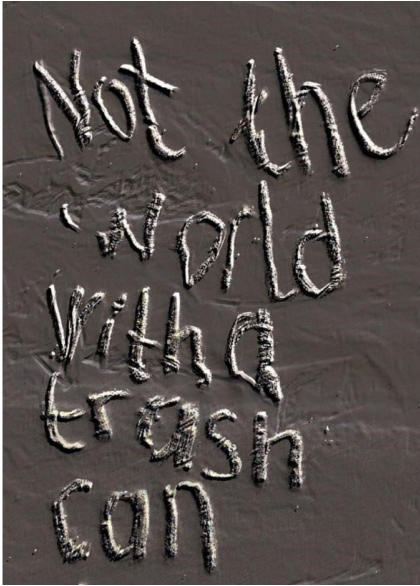 Not the
world
with a
trash
can